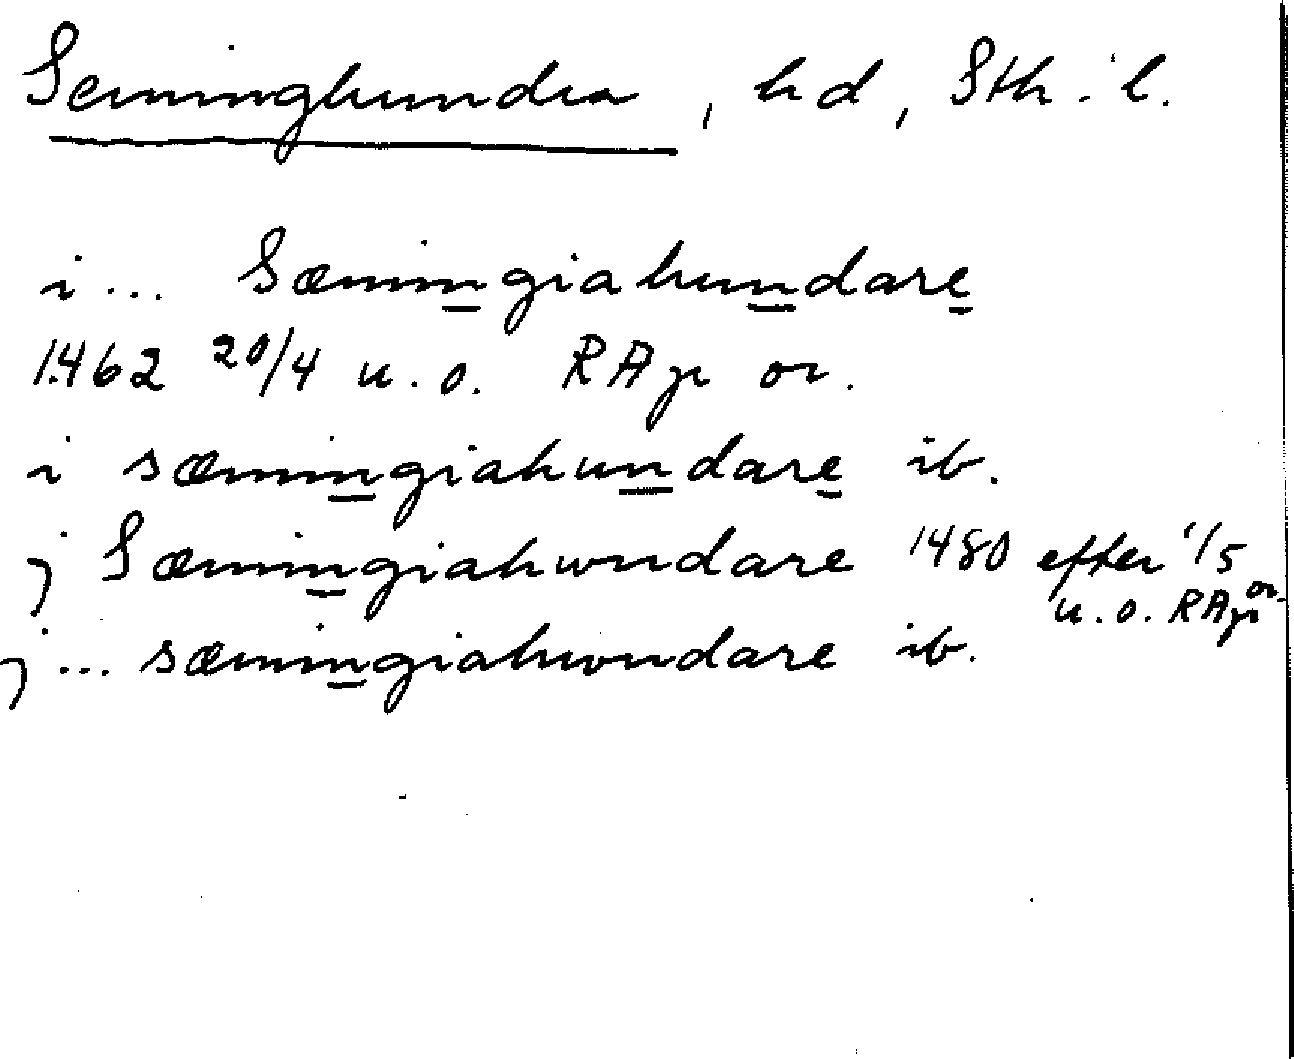 Seminghundra, hd, Sth:l.
i... Sæmingiahundare
1462 20/4 u.o. RAp or.
i sæmingiahundare ib.
j Sæmingiahwndare 1480 efter 1/5
u.o. RAp or.
j... sæmingiahwndare ib.